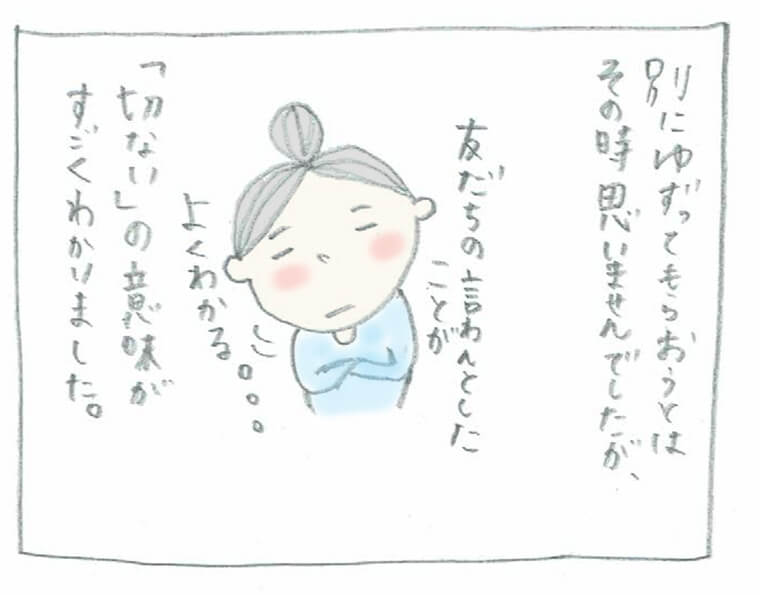 別にゆずってもらおうとは
その時思いませんでしたが、
友だちの言わんとした
ことが
よくわかる。。。
「切ない」の意味が
すごくわかりました。